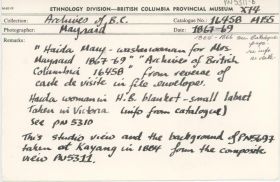 PN 5311-B
ETHNOLOGY DIVISION—BRITISH COLUMBIA PROVINCIAL MUSEUM X14
Collection: Archives of B.C. Catalogue No.: 1645B H.P.55
Photographer: Maynard Date: 1867-69
Remarks:
"Haida Mary - washerwoman for Mrs
Maynard 1867-69" "Archives of British
Columbia 1645B" from reverse of
carte de visite in file envelopes.
Haida woman in H.B. blanket - small label
Taken in Victoria (info from catalogue)
see PN 5310
This studio view and the background of PN 5697
taken at Kayang in 1884 form the composite
view PN 5311.